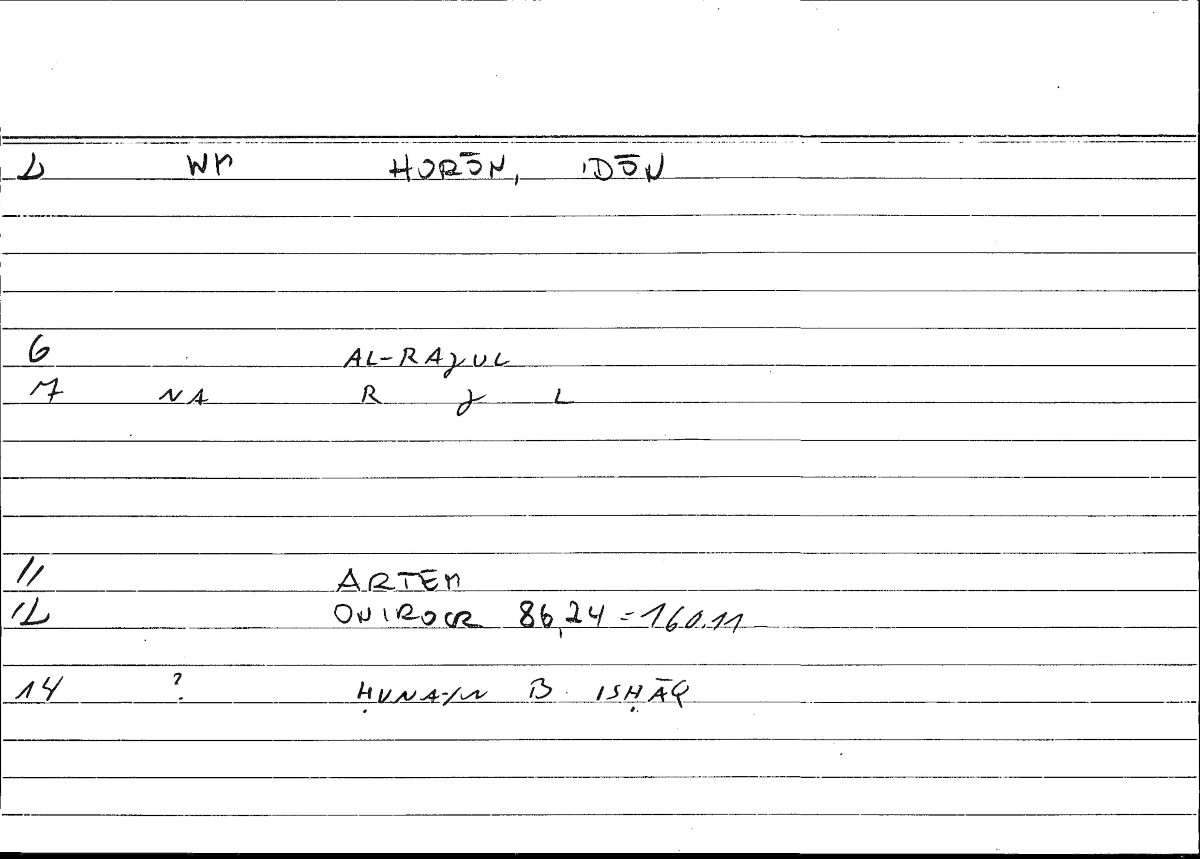 2 WM HORŌN, IDŌN
6 AL-RAJUL
7 NA R J L
11 ARTEM
12 ONIROCR 86,24 = 160.11
14 ? ḤUNAYN B. ISḤĀQ